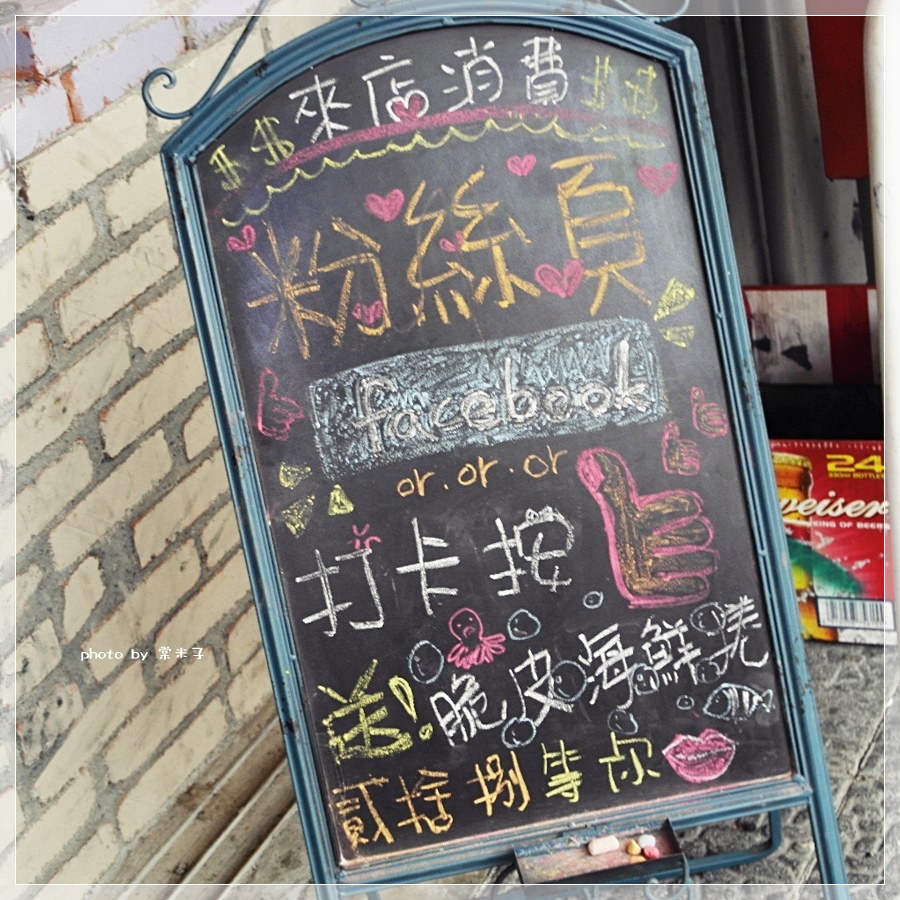 $ $ 來店消費 $ $
粉絲頁
facebook
or.or.or
打卡按
送!脆皮海鮮燒
貳拾捌等你
24
330ml BOTTLES
weiser
KING OF BEERS
photo by 棠米子